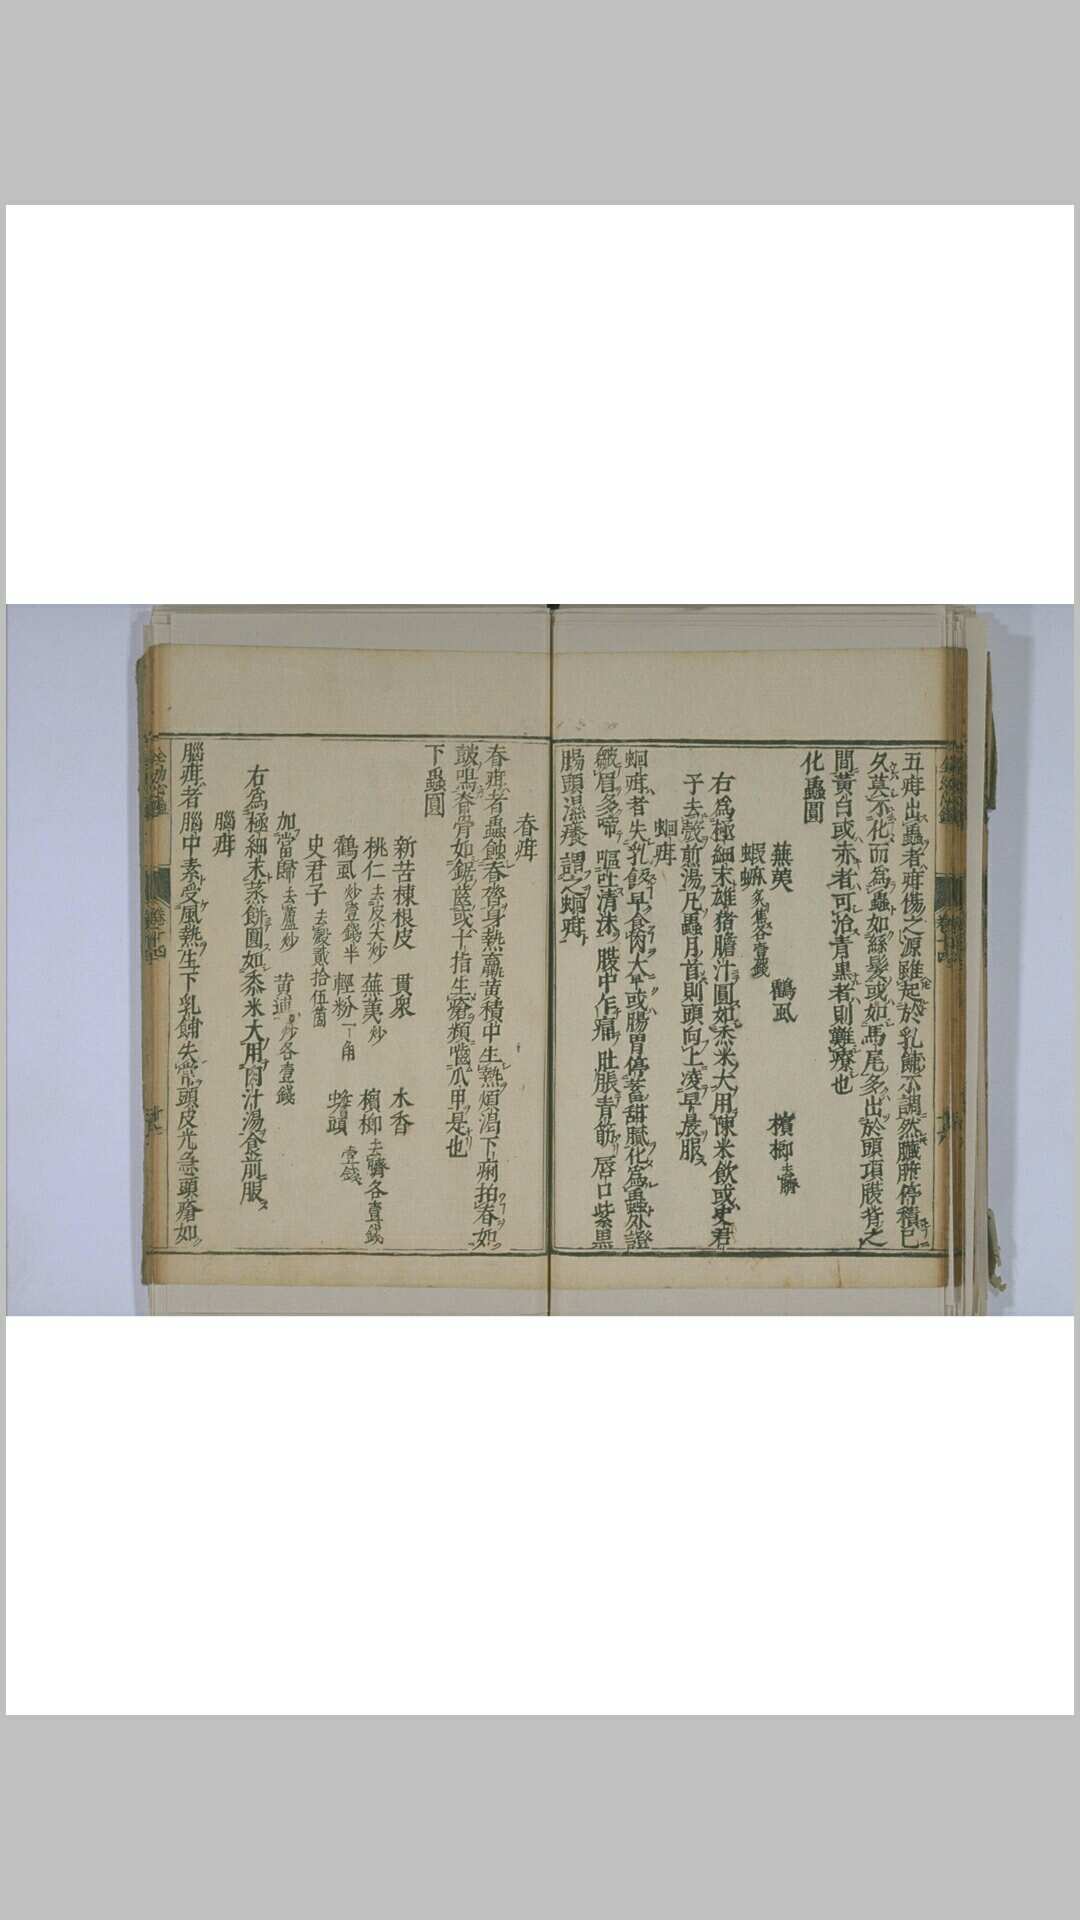 五疳出蟲者疳傷之源雖起於乳餔不調然臟腑停積已
久莫不化而為蟲如絲髮或如馬尾多出於頭項腹背之
間黃白或赤者可治青黒者則難療也
化蟲圓
蕪荑 鶴虱 檳榔去臍
蝦蟆炙焦各壹錢
右為極細末雄猪膽汁圓如黍米大用陳米飲或史君
子去殼煎湯凡蟲月首則頭向上凌早晨服
蛔疳
蛔疳者失乳飯早食肉太早或腸胃停蓄甜膩化為蟲外證
皺眉多啼 嘔吐清沫 腹中乍痛 肚脹青筋 唇口紫黒
腸頭濕癢 謂之蛔疳
脊疳
脊疳者蟲蝕脊膂身熱羸黄積中生熱煩渴下痢拍脊如
鼓鳴脊骨如鋸齒或十指生瘡頻嚙爪甲是也
下蟲圓
新苦棟根皮 貫衆 木香
桃仁去皮尖炒 蕪荑炒 檳榔去臍各壹錢
鶴虱炒壹錢半 輕粉一角 蟾頭壹錢
史君子去殼貳拾伍箇
加當歸去蘆炒 黄連炒各壹錢
右為極細末蒸餅圓如黍米大用肉汁湯食前服
腦疳
腦疳者腦中素受風熱生下乳餔失常頭皮光急頭瘡如
全幼心鑑
卷十四